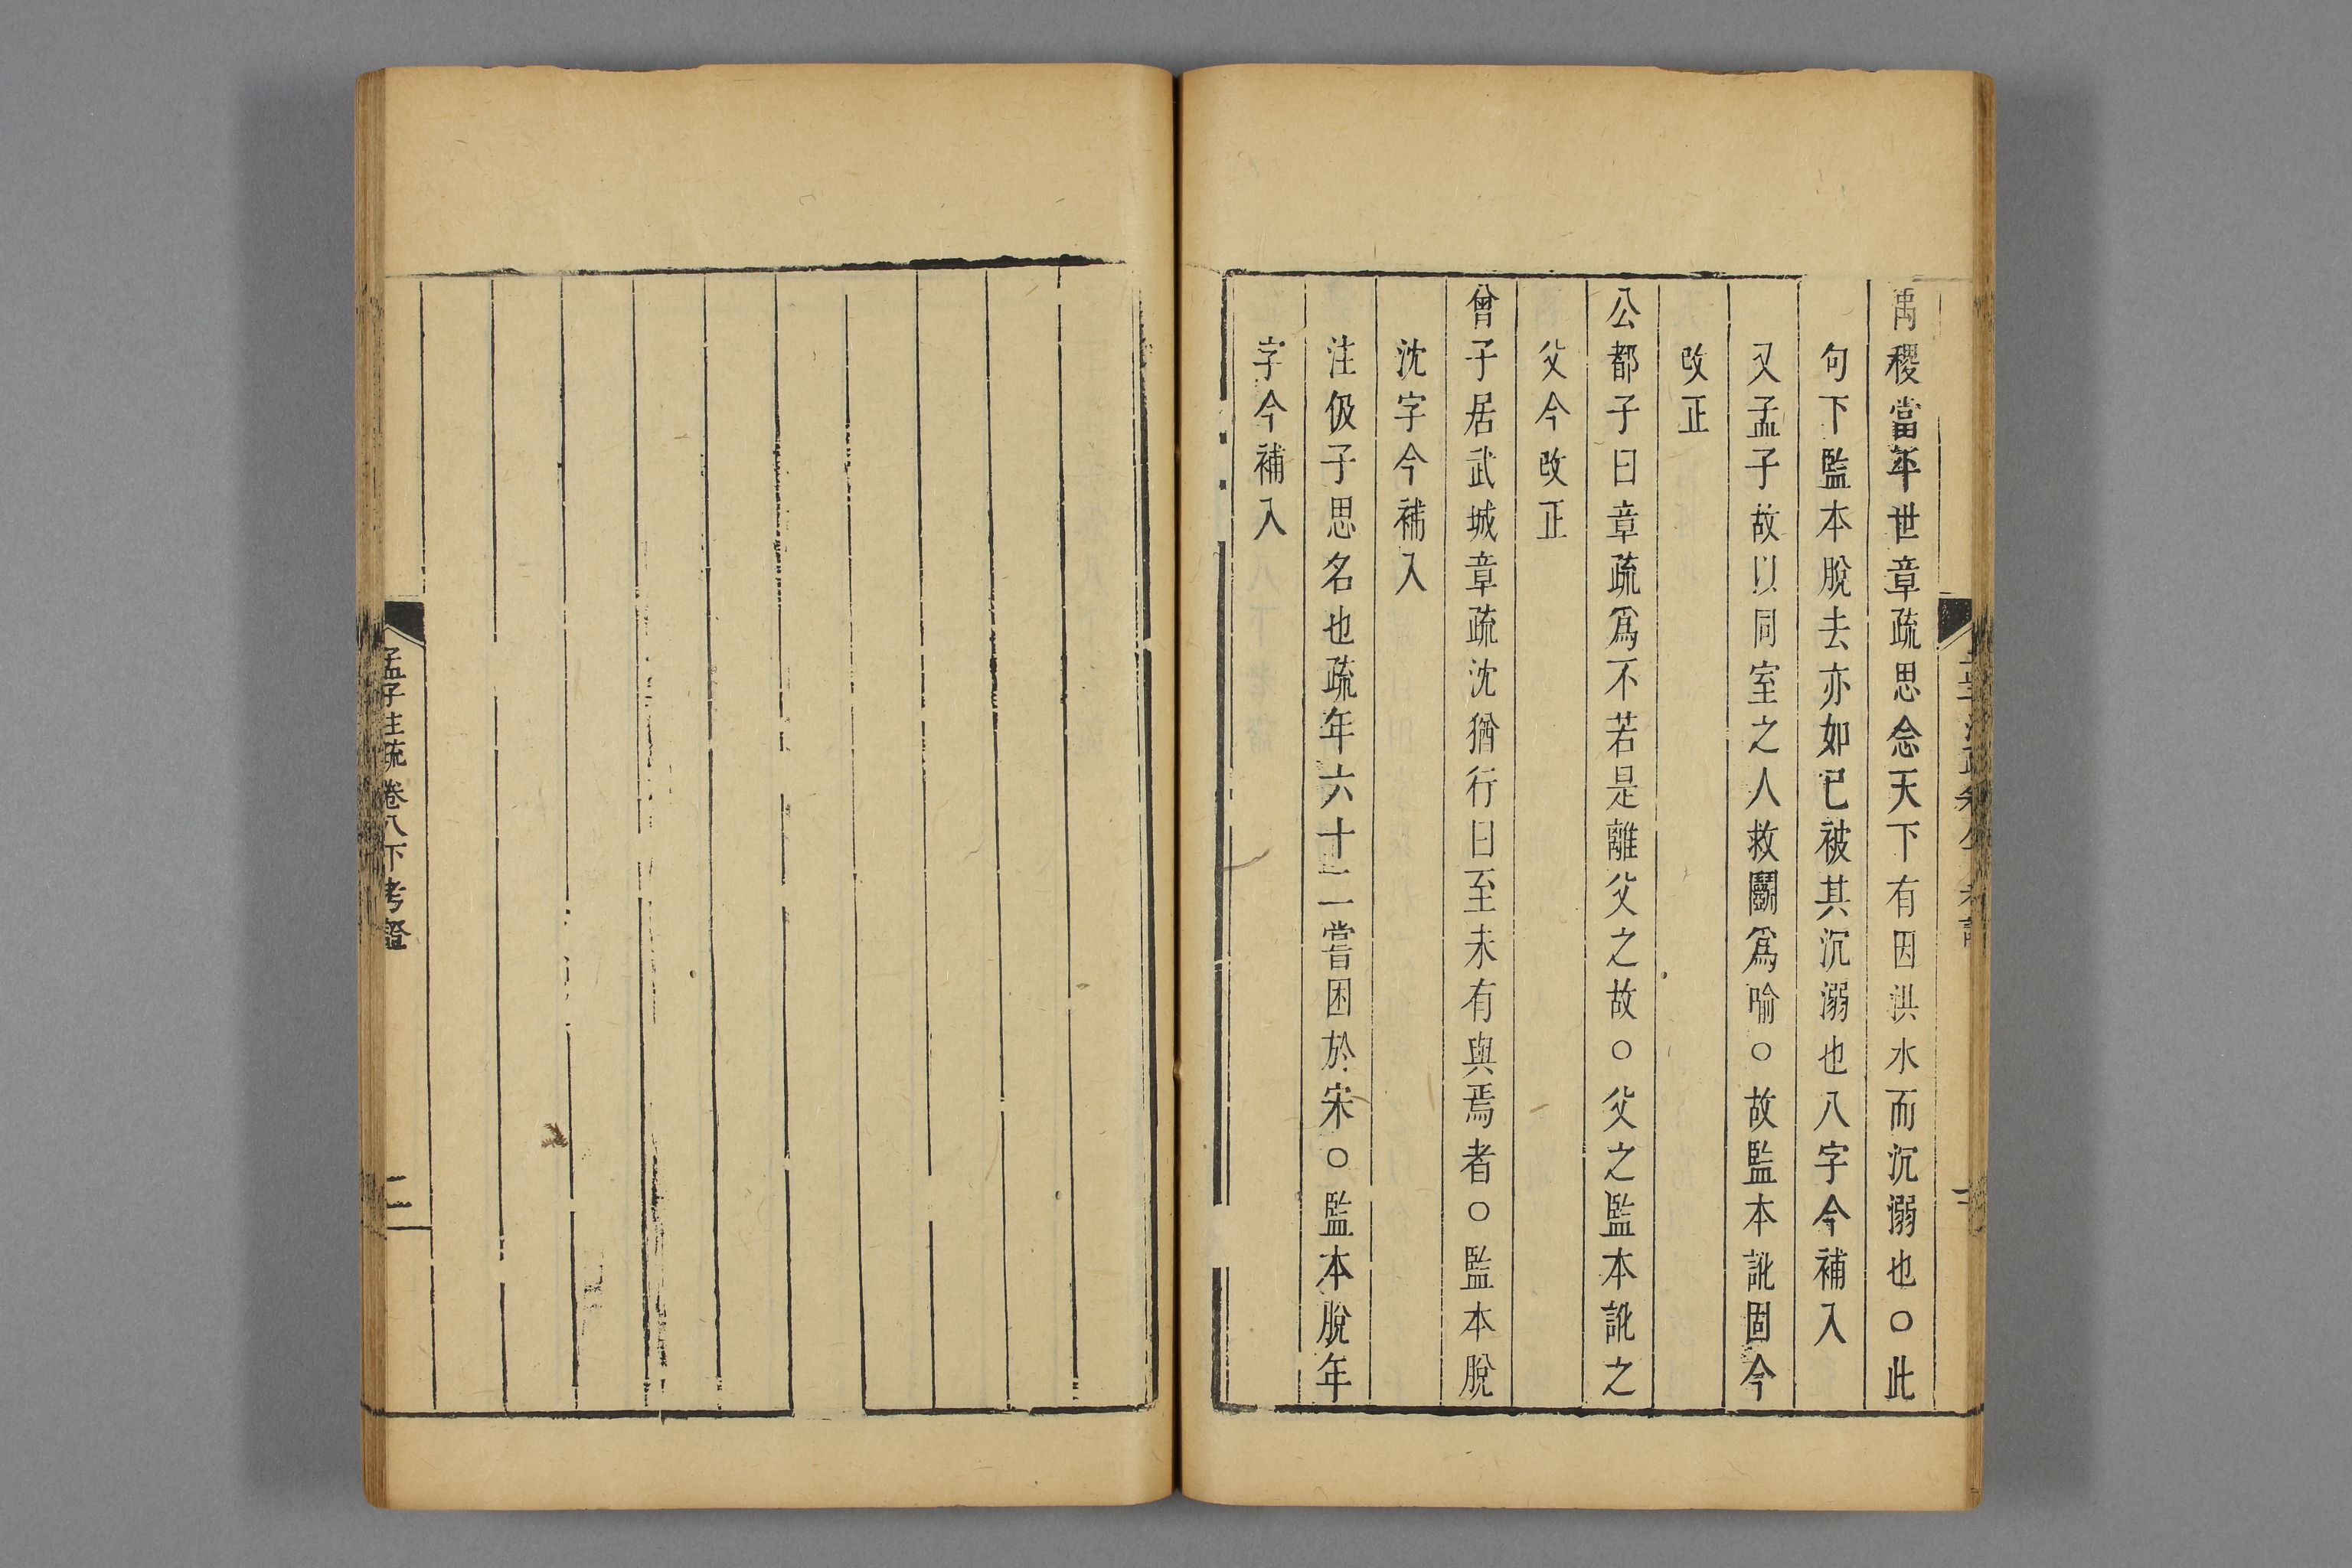 禹稷當年世章疏思念天下有因洪水而沉溺也○此
句下監本脫去亦如已被其沉溺也八字今補入
又孟子故以同室之人救鬭爲喻○故監本訛固今
改正
公都子曰章疏爲不若是離父之故○父之監本訛之
父今改正
曾子居武城章疏沈猶行曰至未有與焉者○監本脫
沈字今補入
注伋子思名也疏年六十二嘗困於宋○監本脫年
字今補入
孟子注疏卷八下考證
二